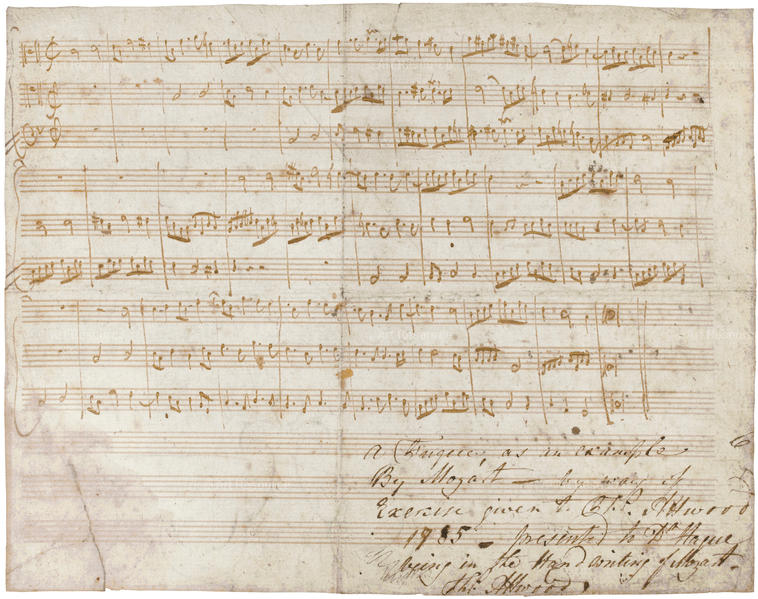 a Fugue, as an example
By Mozart — by way of
Exercise given to Ths. Attwood
1785 — presented to Dr Hague
being in the Hand writing of Mozart.
Ths. Attwood.